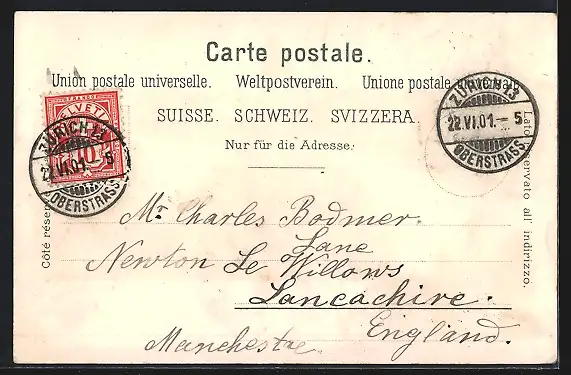 Carte postale.
Union postale universelle. Weltpostverein. Unione postale
SUISSE. SCHWEIZ. SVIZZERA.
Nur für die Adresse.
FRANCO
HELVETIA
10
ZÜRICH 13
22.VI.01.- 5
OBERSTRASS
ZÜRICH 13
22.VI.01.- 5
OBERSTRASS.
Côté
Lato riservato all' indirizzo.
Mr. Charles Bodmer.
Lane
Newton Le Willows
Lancachire.
England.
Manchester